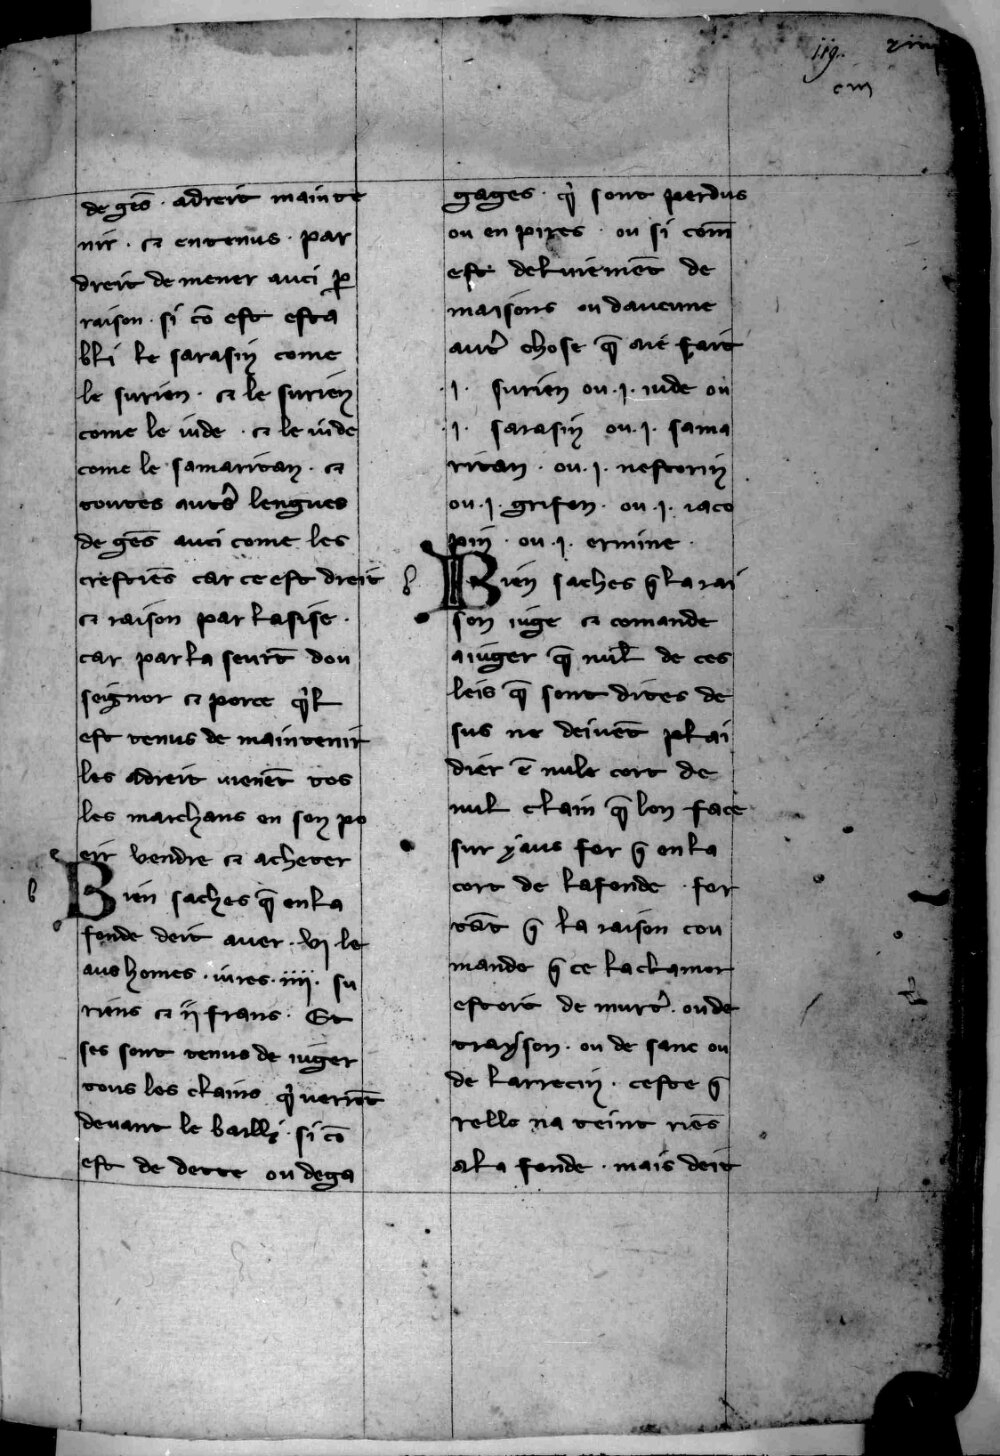 119.
ciii
de gēs · adreit mainte
nir · ⁊ entenus · par
dreit de mener auci ꝑ
raison · si cō est esta
bli le sarasin come
le surien · ⁊ le surien
come le iude · ⁊ le iude
come le samaritan · ⁊
toutes autˢ lengues
de gēs auci come les
crestiēs car ce est dreit
⁊ raison par lasise ·
car par la seurt̄ dou
seignor ⁊ porce qͥl
est tenus de maintenir
les adreit vienēt tos
les marchans en son po
eir vendre ⁊ acheter
b Bien saches q̄ en la
fonde deit auer · vi · le
aus homes · iures · iiii · su
riens ⁊ ii frans · Et
ses sont tenus de iuger
tous les clains qͥ verrōt
deuant le bailli · si cō
est de dette ou de ga
gages · qͥ sont perdus
ou en pires · ou si com̄
est deliuiemēt de
maisons ou daucune
autˢ chose q̄ ait fait
· i · surien ou · i · iude ou
· i · sarasin ou · i · sama
ritan · ou · i · nestorin
ou · i · grifon · ou · i · iaco
pin · ou · i · ermine ·
b Bien saches q̄ la rai
son iuge ⁊ comande
a iuger q̄ nul de ces
leis q̄ sont dites de
sus ne deiuēt plai
dier ē nule cort de
nul clain q̄ lon face
sur yaus for q̄ en la
cort de la fonde · for
tāt q̄ la raison cou
mande q̄ ce la clamor
estoit de murtˢ · ou de
trayson · ou de sanc ou
de larrecin · ceste q̄
relle na teint riēs
a la fonde · mais deit